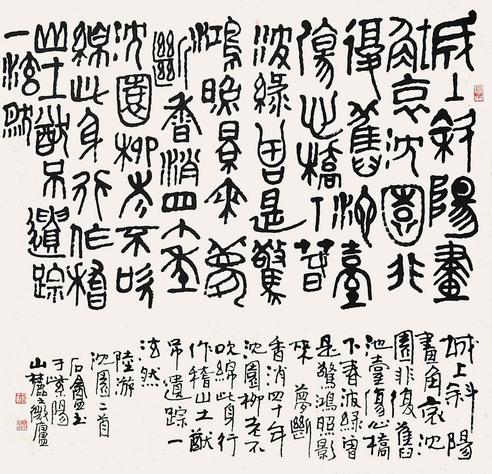 城上斜陽畫
角哀沈園非
復舊池臺
傷心橋下春
波綠曾是驚
鴻照景來夢
斷香消四十年
沈園柳老不吹
綿此身行作稽
山土猶弔遺踪
一泫然
城上斜陽
畫角哀沈
園非復舊
池臺傷心橋
下春波綠曾
是驚鴻照影
來夢斷
香消四十年
沈園柳老不
吹綿此身行
作稽山土猶
弔遺踪一
泫然
陸游
沈園二首
于紫陽
山麓之廬